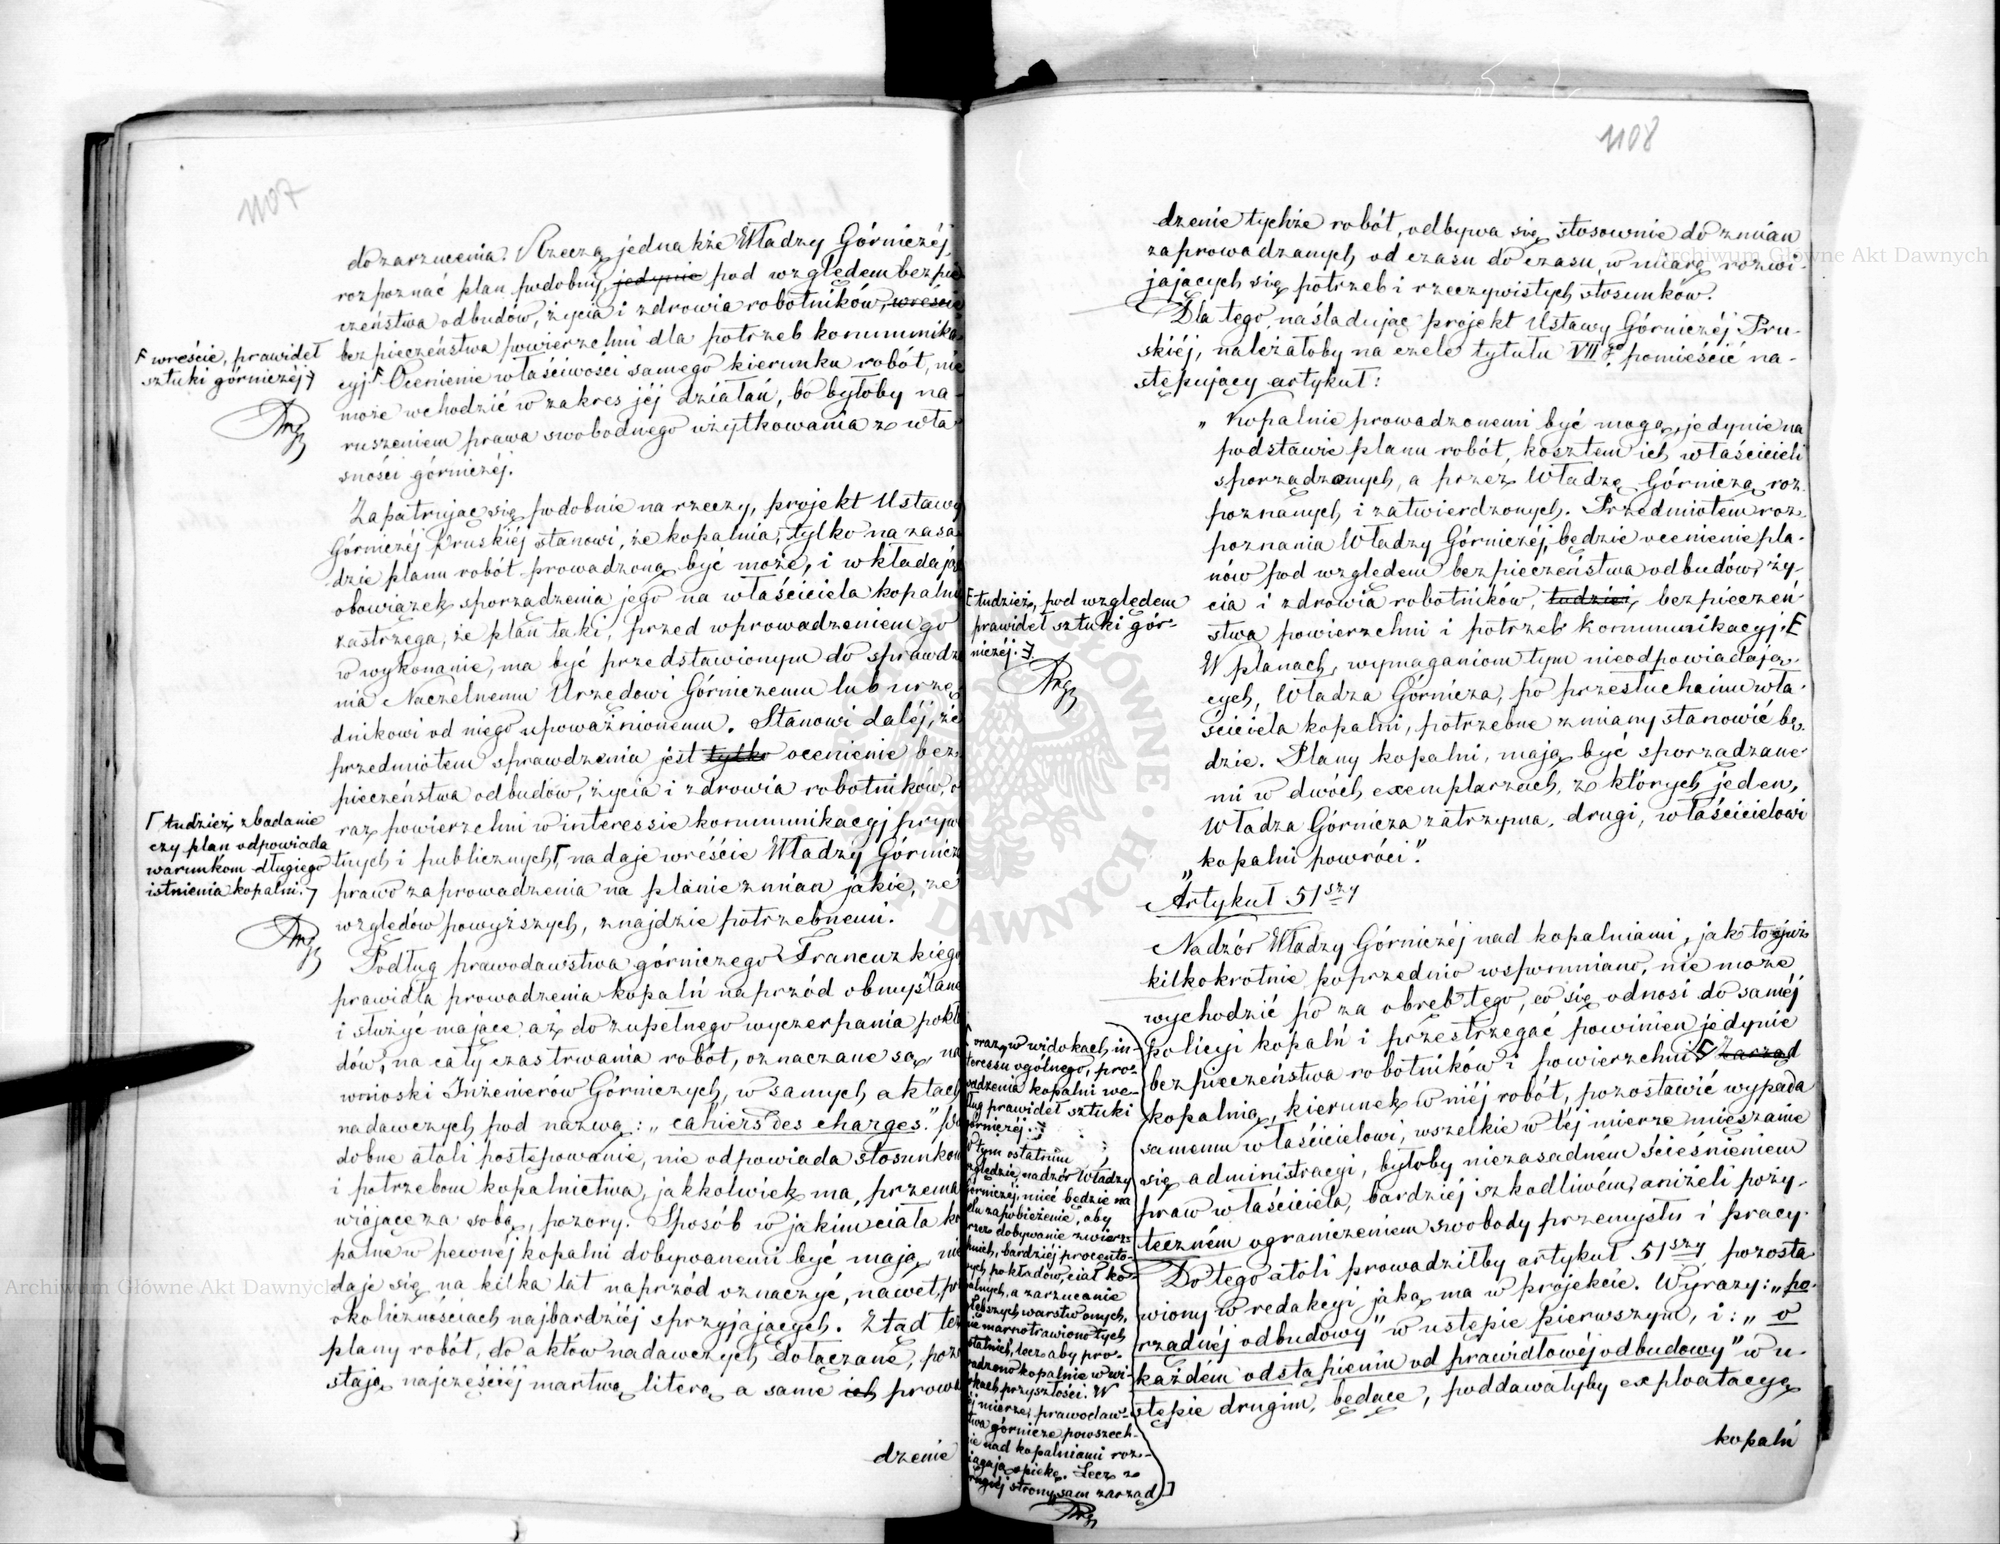 1107
do zarzucenia. Rzeczą jednakże Władzy Górniczéj,
rozpoznać plan podobny, jedynie pod względem bezpie
czeństwa odbudów, życia i zdrowia robotników, wreście
bezpieczeństwa powierzchni dla potrzeb kommunika
cyj. Ocenienie właściwości samego kierunku robót, nie
może wchodzić w zakres jéj działań, bo byłoby na-
ruszeniem prawa swobodnego użytkowania z wła
sności górniczéj.
wreście, prawideł
sztuki górniczéj
Zapatrując się podobnie na rzeczy, projekt Ustawy
Górniczéj Pruskiéj stanowi, że kopalnia, tylko na zasa
dzie planu robót prowadzoną być może, i wkładając
obowiązek sporządzenia jego na właściciela kopalni
zastrzega, że plan taki, przed wprowadzeniem go
w wykonanie, ma być przedstawionym do sprawdze
nia Naczelnemu Urzędowi Górniczemu lub urzę
dnikowi od niego upoważnionemu. Stanowi daléj, że
przedmiotem sprawdzenia jest tylko ocenienie bez-
pieczeństwa odbudów, życia i zdrowia robotników, o
raz powierzchni w interessie kommunikacyj pryw
tnych i publicznych, nadaje wréście Władzy Górnicz
prawo zaprowadzenia na planie zmian jakie, ze
względów powyższych, znajdzie potrzebnemi.
tudzież zbadanie
czy plan odpowiada
warunkom długiego
istnienia kopalni.
Podług prawodawstwa górniczego Francuzkiego
prawidła prowadzenia kopalń naprzód obmyślane
i służyć mające aż do zupełnego wyczerpania pokł
dów, na cały czas trwania robót, oznaczane są, na
wnioski Inżenierów Górniczych, w samych aktach
nadawczych pod nazwą: „cahiers des charges". Po
dobne atoli postępowanie, nie odpowiada stosunkom
i potrzebom kopalnictwa, jakkolwiek ma, przema
wiające za sobą, pozory. Sposób w jakim ciała ko
palne w pewnéj kopalni dobywanemi być mają, nie
daje się na kilka lat naprzód oznaczyć, nawet, po
okolicznościach najbardziéj sprzyjających. Ztąd też
plany robót, do aktów nadawczych dołączane, pozo
stają najczęściéj martwą literą a same ich prowa
dzenie
1108
dzenie tychże robót, odbywa się stosownie do zmian
zaprowadzanych, od czasu do czasu, w miarę rozwi-
jających się potrzeb i rzeczywistych stosunków.
Dla tego, naśladując projekt Ustawy Górniczéj Pru-
skiéj, należałoby na czele tytułu VIIgo pomieścić na-
stępujący artykuł:
„Kopalnie prowadzonemi być mogą, jedynie na
podstawie planu robót, kosztem ich właścicieli
sporządzonych, a przez Władzę Górniczą roz-
poznanych i zatwierdzonych. Przedmiotem roz-
poznania Władzy Górniczéj, będzie ocenienie pla-
nów pod względem bezpieczeństwa odbudów, ży-
cia i zdrowia robotników, tudzież, bezpieczeń
stwa powierzchni i potrzeb kommunikacyj.
W planach, wymaganiom tym nieodpowiadają-
cych, Władza Górnicza, po przesłuchaniu wła-
ściciela kopalni, potrzebne zmiany stanowić bę-
dzie. Plany kopalni, mają być sporządzane-
mi w dwóch exemplarzach, z których jeden,
Władza Górnicza zatrzyma, drugi, właścicielowi
„kopalni powróci".
tudzież, pod względem
prawideł sztuki gór-
niczéj.
Artykuł 51szy
Nadzór Władzy Górniczéj nad kopalniami, jak to już
kilkokrotnie poprzednio wspomniano, nie może
wychodzić po za obręb tego, co się odnosi do saméj
policyi kopalń i przestrzegać powinien jedynie
bezpieczeństwa robotników i powierzchni. Zarząd
kopalnią, kierunek w niéj robót, pozostawić wypada
samemu właścicielowi, wszelkie w téj mierze mięszanie
się administracyi, byłoby niezasadném ścieśnieniem
praw właściciela, bardziéj szkodliwém, aniżeli poży-
teczném ograniczeniem swobody przemysłu i pracy.
Do tego atoli prowadziłby artykuł 51szy pozosta
wiony w redakcyi jaką ma w projekcie. Wyrazy: „po-
rządnéj odbudowy" w ustępie pierwszym, i: „o
każdém odstąpieniu od prawidłowéj odbudowy" w u-
stępie drugim, będące, poddawałyby exploatacyą
kopalń
oraz, w widokach in-
teresu ogólnego, pro-
wadzenia kopalni we-
dług prawideł sztuki
górniczéj.
W tym ostatnim
względzie, nadzór Władzy
Górniczéj, mieć będzie na
celu zapobieżenie, aby
przez dobywanie zwierz-
chnich, bardziéj procento-
wych pokładów, ciał ko-
palnych, a zarzucanie
głębszych warstwonych,
nie marnotrawiono tych
ostatnich, lecz aby pro-
wadzono kopalnie w wi-
dokach przyszłości. W
téj mierze, prawodaw-
stwa górnicze powszech-
nie nad kopalniami roz-
ciągają opiekę. Lecz z
drugiéj strony, sam zarząd
Archiwum Główne Akt Dawnych
Archiwum Główne Akt Dawnych